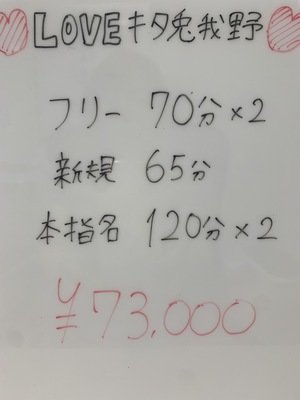 LOVEキタ兎我野
フリー 70分×2
新規 65分
本指名 120分×2
¥73,000